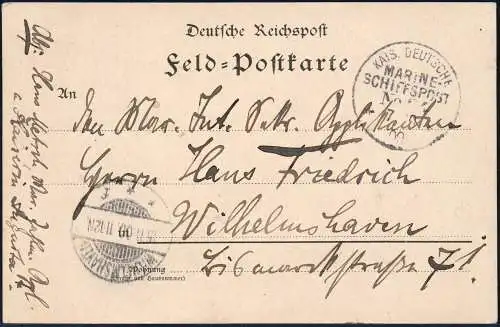 Deutsche Reichspost
Feld-Postkarte
KAIS. DEUTSCHE
MARINE-
SCHIFFSPOST
No
An
den Mar. Int. Sekr. Applikanten
Herrn Hans Friedrich
Wilhelmshaven
Bismarckstraße 71.
WILHELMSHAVEN
Wohnung
(Straße und Hausnummer)
Abs: Hans
Mar. Zahlm. Appl.
Kaiserin Augusta